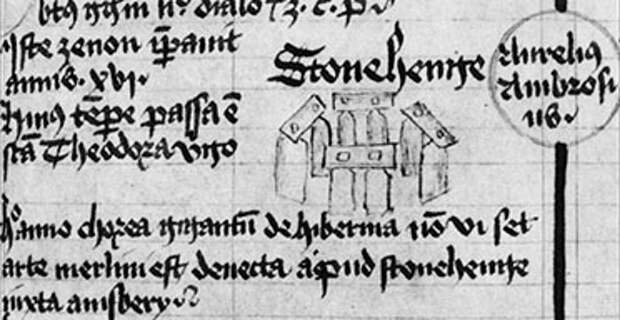 Iste zenon īpauit
annis. xvi.
huius tēpe passa ē
stā Theodora virgo
Stonehenge
Aurelius
Ambrosi
us.
hoc anno chorea gigantū de hibernia nō vi set
arte merlini est deuecta apud stonehenge
iuxta amsbery